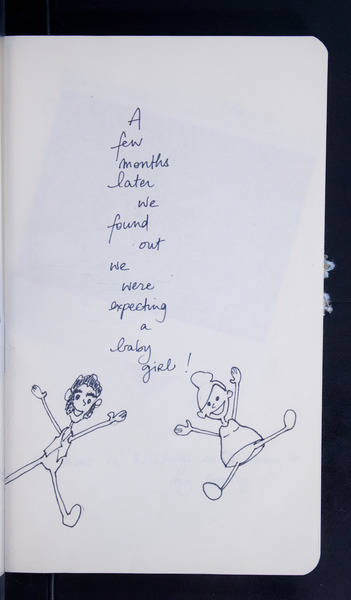 A
few
months
later
we
found
out
we
were
expecting
a
baby
girl!